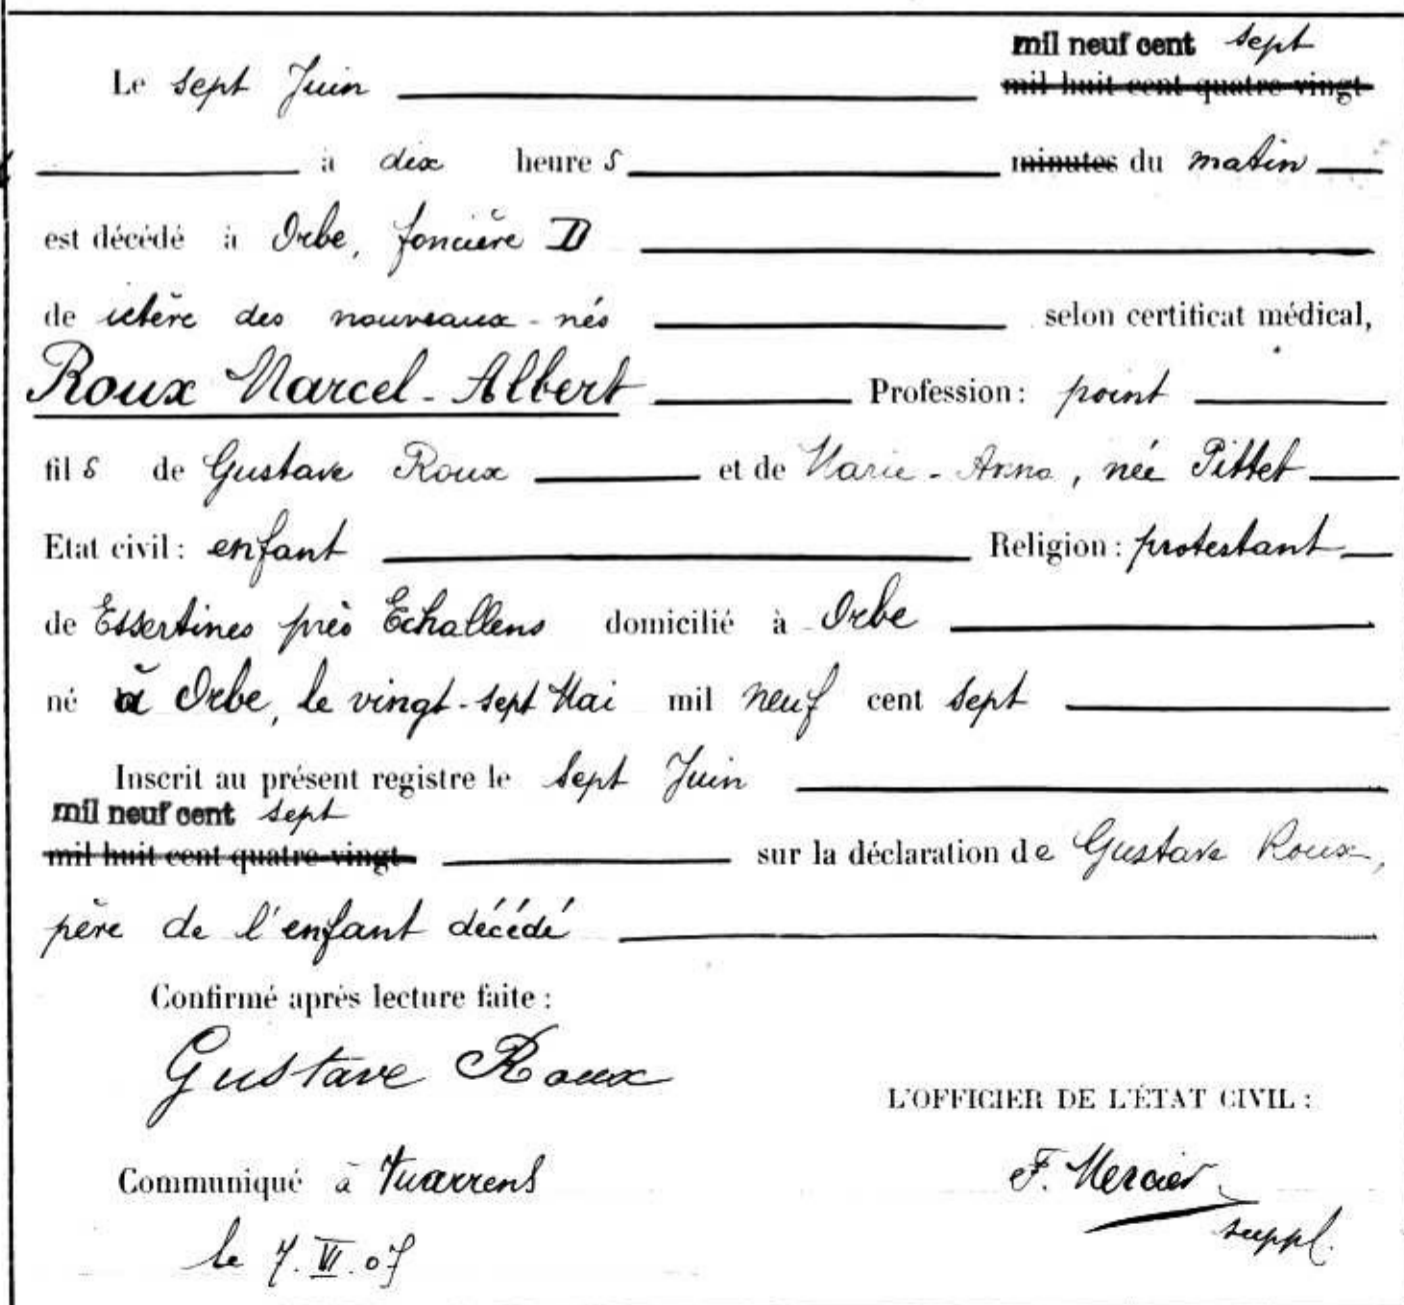 mil neuf cent sept
Le sept Juin mil huit cent quatre-vingt
à dix heures minutes du matin
est décédé à Orbe, foncière D
de ictère des nouveaux-nés selon certificat médical,
Roux Marcel-Albert Profession: point
fils de Gustave Roux et de Marie-Anna, née Pittet
Etat civil: enfant Religion: protestant
de Essertines près Echallens domicilié à Orbe
né à Orbe, le vingt-sept Mai mil neuf cent sept
Inscrit au présent registre le sept Juin
mil neuf cent sept
mil huit cent quatre-vingt sur la déclaration de Gustave Roux,
père de l'enfant décédé
Confirmé après lecture faite:
Gustave Roux
L'OFFICIER DE L'ÉTAT CIVIL:
Communiqué à Vuarrens F. Mercier
suppl.
le 7. VI. 07